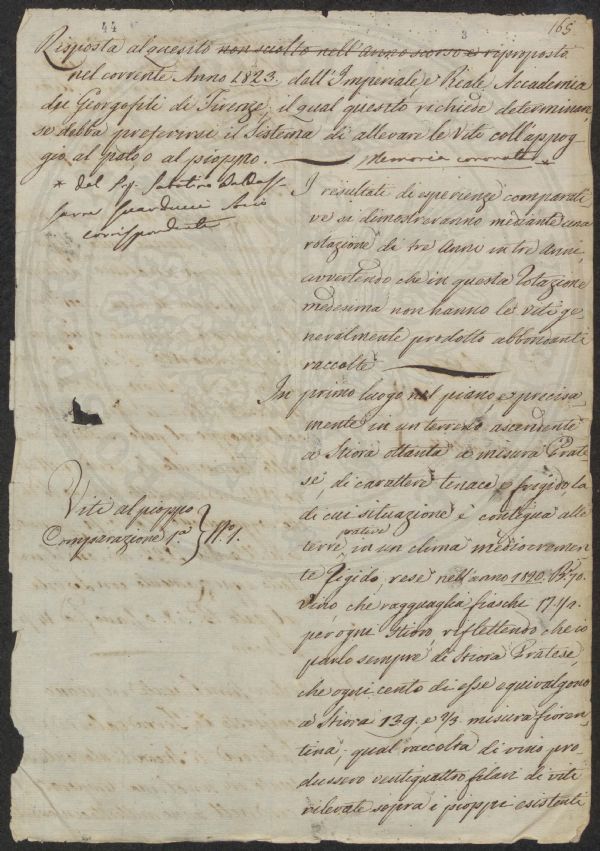 44
3
165
Risposta al quesito non sciolto nell'anno scorso e riproposto
nel corrente Anno 1823. dall'Imperiale e Reale Accademia
dei Georgofili di Firenze, il qual quesito richiede determinare
se debba preferirsi il Sistema di allevare le Viti coll'appog-
gio al palo o al pioppo.
Memoria coronata *
* del Sig. Sabatino Baldas-
sarre Guarducci Socio
corrispondente
I resultati di esperienze comparati
ve si dimostreranno mediante una
rotazione di tre Anni in tre Anni
avvertendo che in questa Rotazione
medesima non hanno le viti ge
neralmente prodotto abbondanti
raccolte
In primo luogo nel piano e precisa
mente in un terreno ascendente
a Stiora ottanta a misura Prate
se, di carattere tenace e frigido, la
di cui situazione è contigua alle
terre prative in un clima mediocremen
te Rigido, rese nell'anno 1820. 70.
Vino che ragguaglia fiaschi 17.1/2.
per ogni Stioro, riflettendo che io
parlo sempre di Stiora Pratese,
che ogni cento di esse equivalgono
a Stiora 139. e 2/3 misura fioren
tina. qual raccolta di vino pro
dussero ventiquattro filari di viti
rilevate sopra i pioppi esistenti
Viti al pioppo
Comparazione 1a
N.o 1.